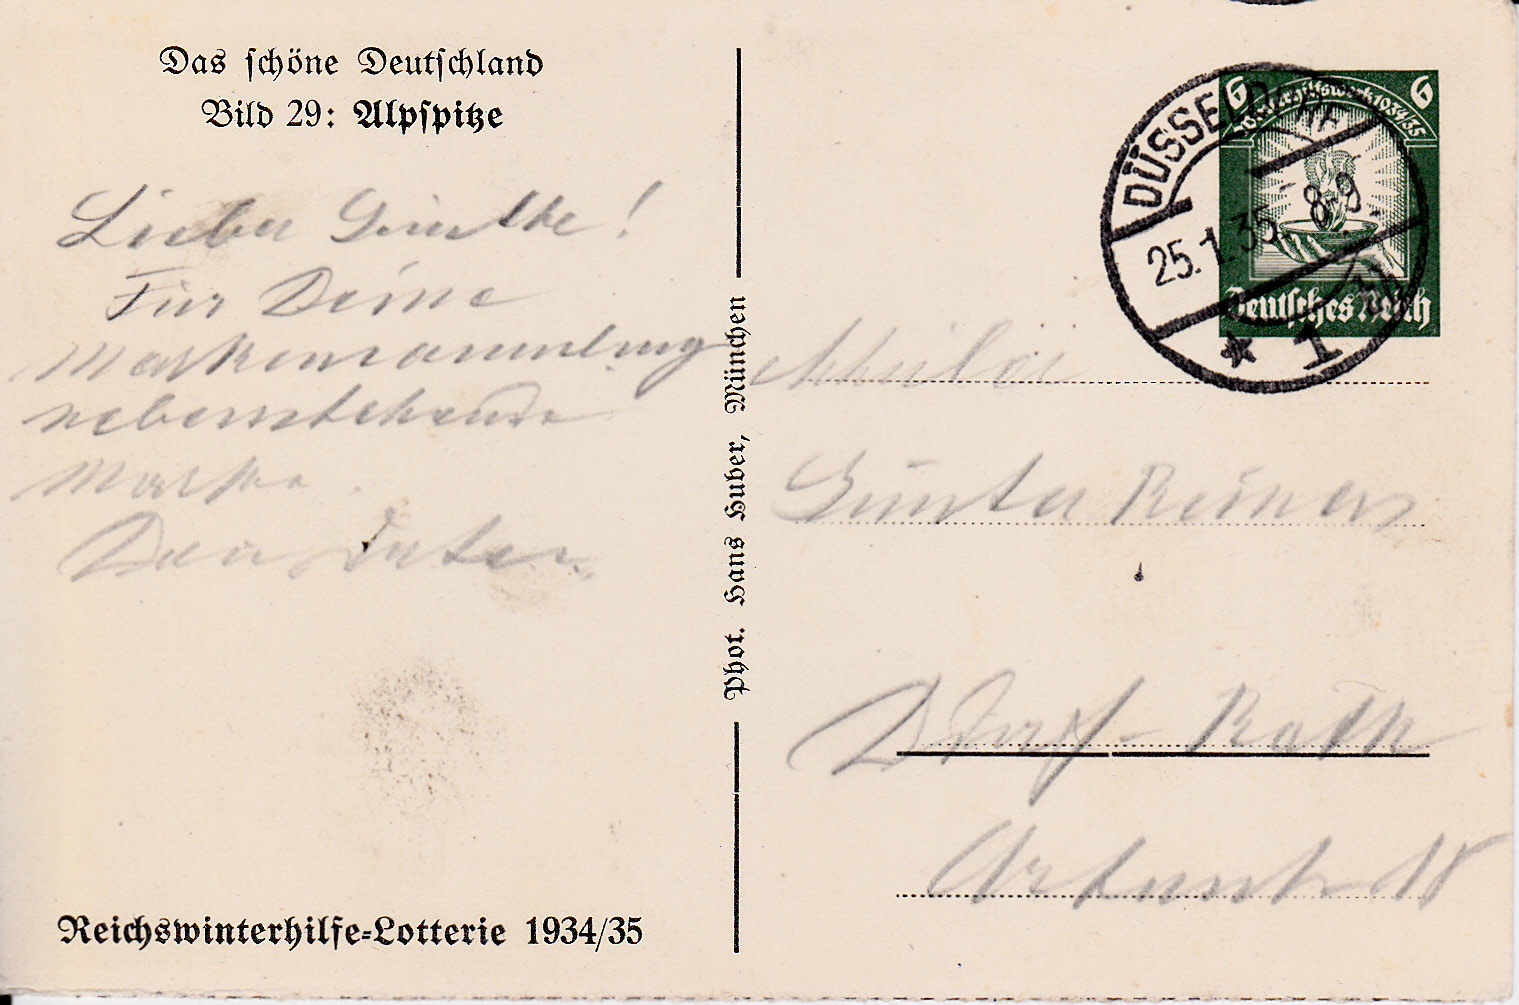 Das schöne Deutschland
Bild 29: Alpspitze
Lieber Günther!
Für Deine
Markensammlung
nebenstehende
Marke.
Dein Vater.
Reichswinterhilfe-Lotterie 1934/35
Phot. Hans Huber, München
6 Winterhilfswerk 1934/35 6
Deutsches Reich
DÜSSELDORF
25.1.35. 8-9.
* 1
Schüler
Günter Reiners
Ddorf-Rath